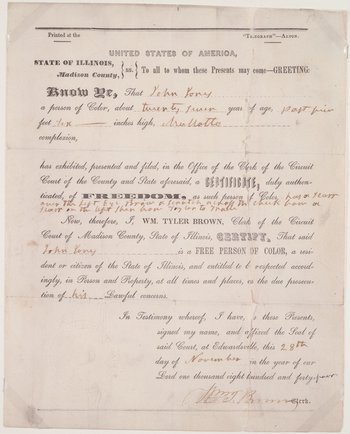 Printed at the "Telegraph"—Alton.
UNITED STATES OF AMERICA,
STATE OF ILLINOIS,
Madison County, } ss. To all to whom these Presents may come—GREETING:
Know Ye, That John Jones
a person of Color, about twenty seven years of age,
feet six inches high, Mulatto
complexion,
has exhibited, presented and filed, in the Office of the Clerk of the Circuit
Court of the County and State aforesaid, a CERTIFICATE, duly authen-
ticated, of FREEDOM, as such person of Color, has a scar
over the left Eye Brow a scar on the cheek bone a
scar on the left shin bone
Now, therefore, I, WM. TYLER BROWN, Clerk of the Circuit
Court of Madison County, State of Illinois, CERTIFY, That said
John Jones is a FREE PERSON OF COLOR, a resi-
dent or citizen of the State of Illinois, and entitled to be respected accord-
ingly, in Person and Property, at all times and places, in the due prosecu-
tion of his Lawful concerns.
In Testimony whereof, I have, to these Presents,
signed my name, and affixed the Seal of
said Court, at Edwardsville, this 28th
day of November in the year of our
Lord one thousand eight hundred and forty-four
Wm T Brown Clerk.